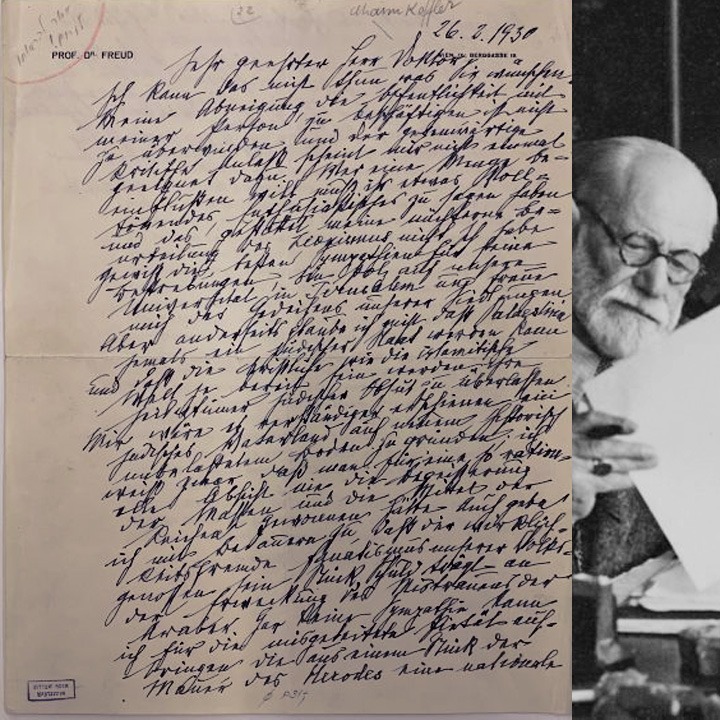 Chaim Koffler
26.2.1930
PROF. DR. FREUD
WIEN, IX., BERGGASSE 19.
Sehr geehrter Herr Doktor
Ich kann das nicht thun, was Sie wünschen.
Meine Abneigung, die Öffentlichkeit mit
meiner Person zu beschäftigen ist nicht
zu überwinden und der gegenwärtige
kritische Anlaß scheint mir nicht einmal
geeignet dazu. Wer eine Menge be=
einflußen will, muß ihr etwas Voll=
tönendes, Enthusiastisches zu sagen haben
und das gestattet meine nüchterne Be=
urteilung des Zionismus nicht. Ich habe
gewiß die besten Sympathien für
Bestrebungen, bin stolz auf unsere
Universität in Jerusalem und freue
mich des Gedeihens unserer Siedlungen
Aber anderseits glaube ich nicht, daß Palästina
jemals ein jüdischer Staat werden kann
und daß die christliche wie die islamitische
Welt je bereit sein werden, ihre
Heiligtümer jüdischer Obhut zu überlassen.
Mir wäre es verständiger erschienen, ein
jüdisches Vaterland auf neuem, historisch
unbelastetem Boden zu gründen; ich
weiß zwar, daß man für eine so ration=
elle Absicht nie die Begeisterung
der Massen und die Mittel der
Reichen gewonnen hätte. Auch gebe
ich mit Bedauern zu, daß der wirklich=
keitsfremde Fanatismus unserer Volks=
genossen sein Stück Schuld trägt an
der Erweckung des Mistrauens der
Araber. Gar keine Sympathie kann
ich für die misgedeutete Pietät auf=
bringen, die aus einem Stück der
Mauer des Herodes eine nationale